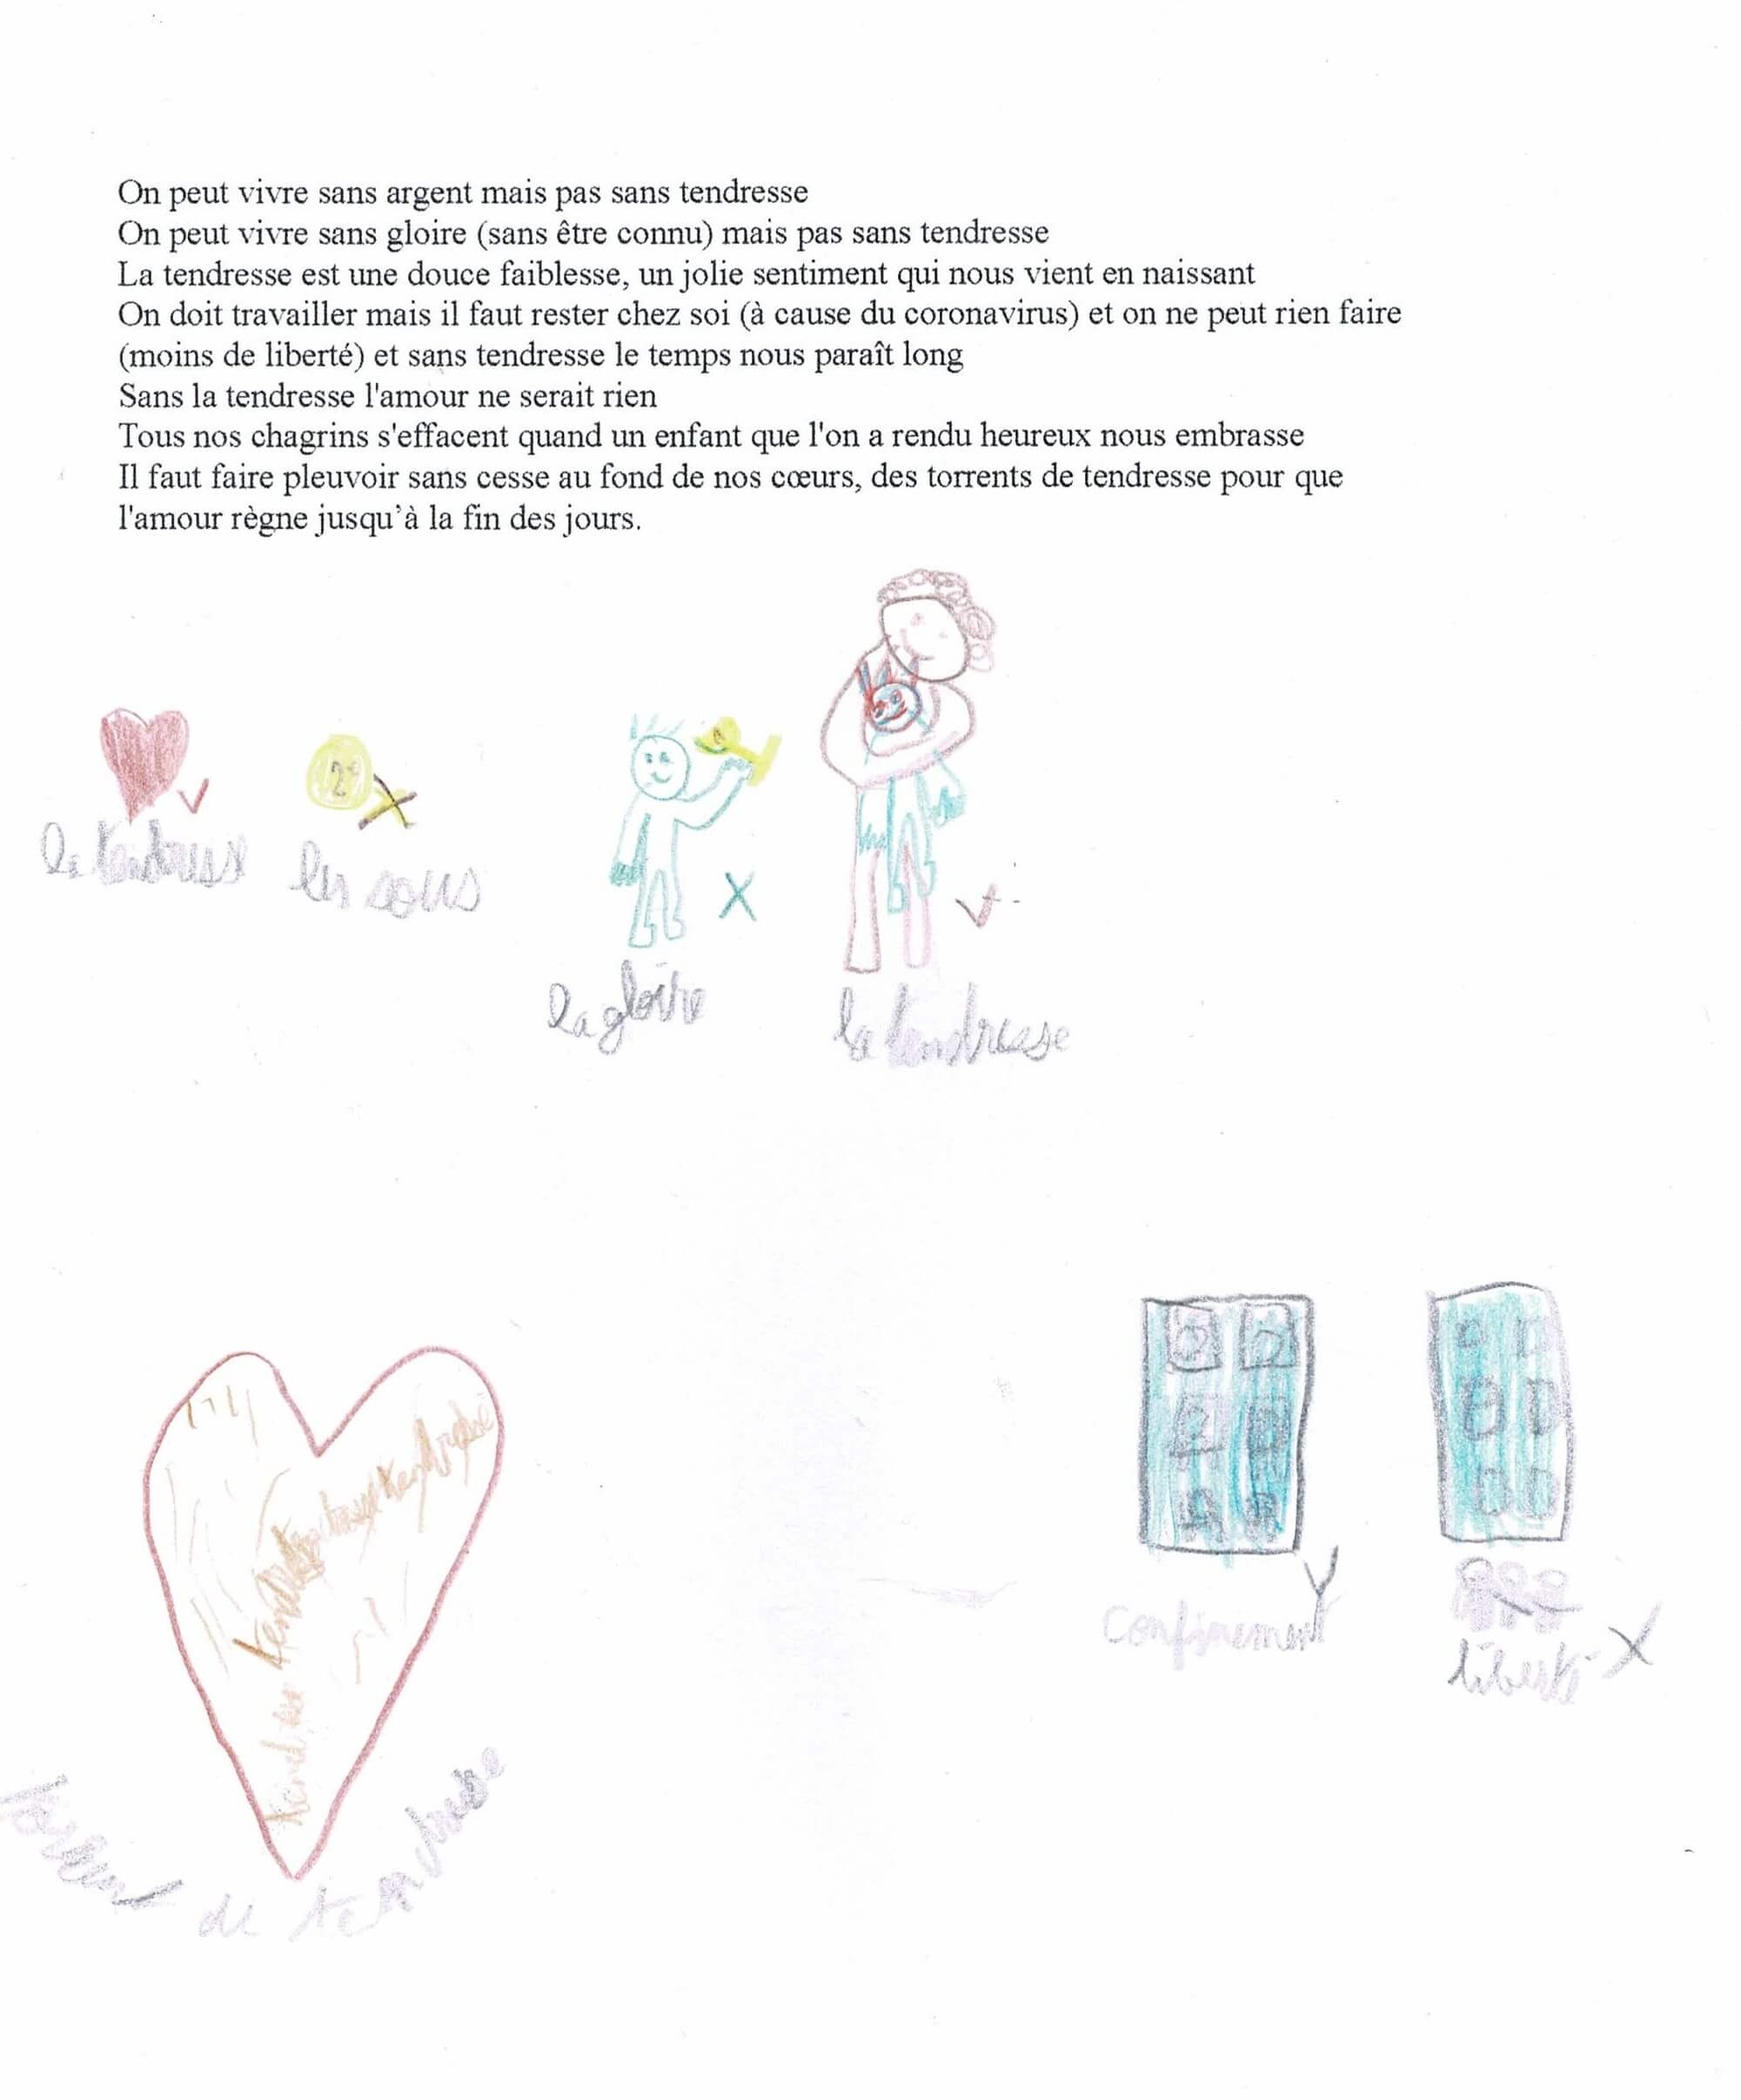 On peut vivre sans argent mais pas sans tendresse
On peut vivre sans gloire (sans être connu) mais pas sans tendresse
La tendresse est une douce faiblesse, un jolie sentiment qui nous vient en naissant
On doit travailler mais il faut rester chez soi (à cause du coronavirus) et on ne peut rien faire
(moins de liberté) et sans tendresse le temps nous paraît long
Sans la tendresse l'amour ne serait rien
Tous nos chagrins s'effacent quand un enfant que l'on a rendu heureux nous embrasse
Il faut faire pleuvoir sans cesse au fond de nos cœurs, des torrents de tendresse pour que
l'amour règne jusqu'à la fin des jours.
2€
la tendresse les sous
la gloire la tendresse
tendresse
confinement liberté
torrent de tendresse